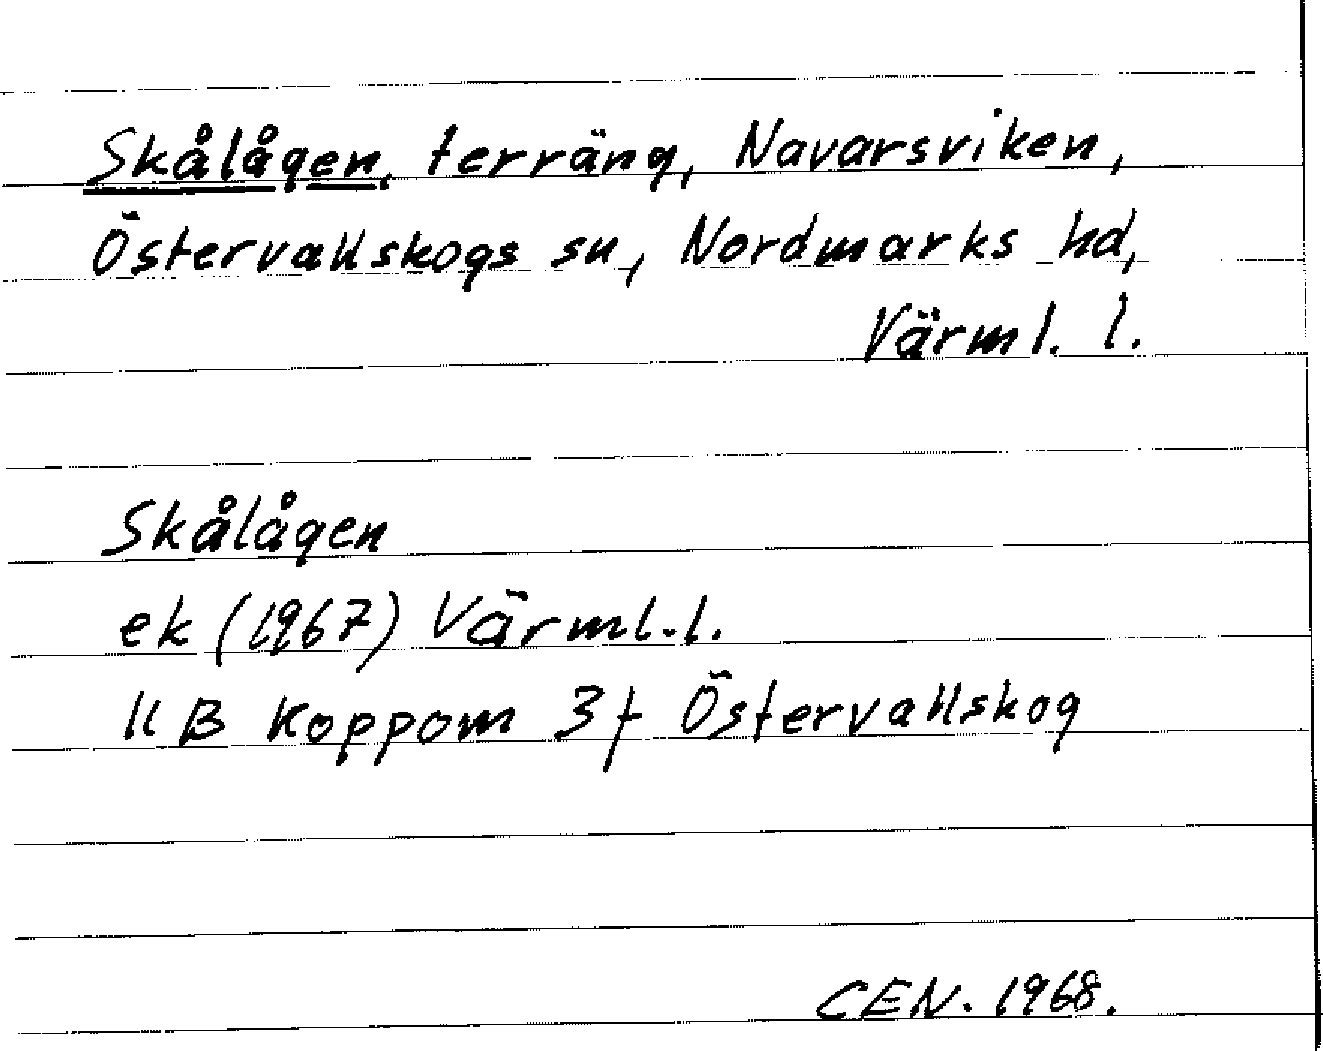 Skålågen, terräng, Navarsviken,
Östervallskogs sn, Nordmarks hd,
Värml. l.
Skålågen
ek (1967) Värml. l.
11 B Koppom 3f Östervallskog
CEN. 1968.